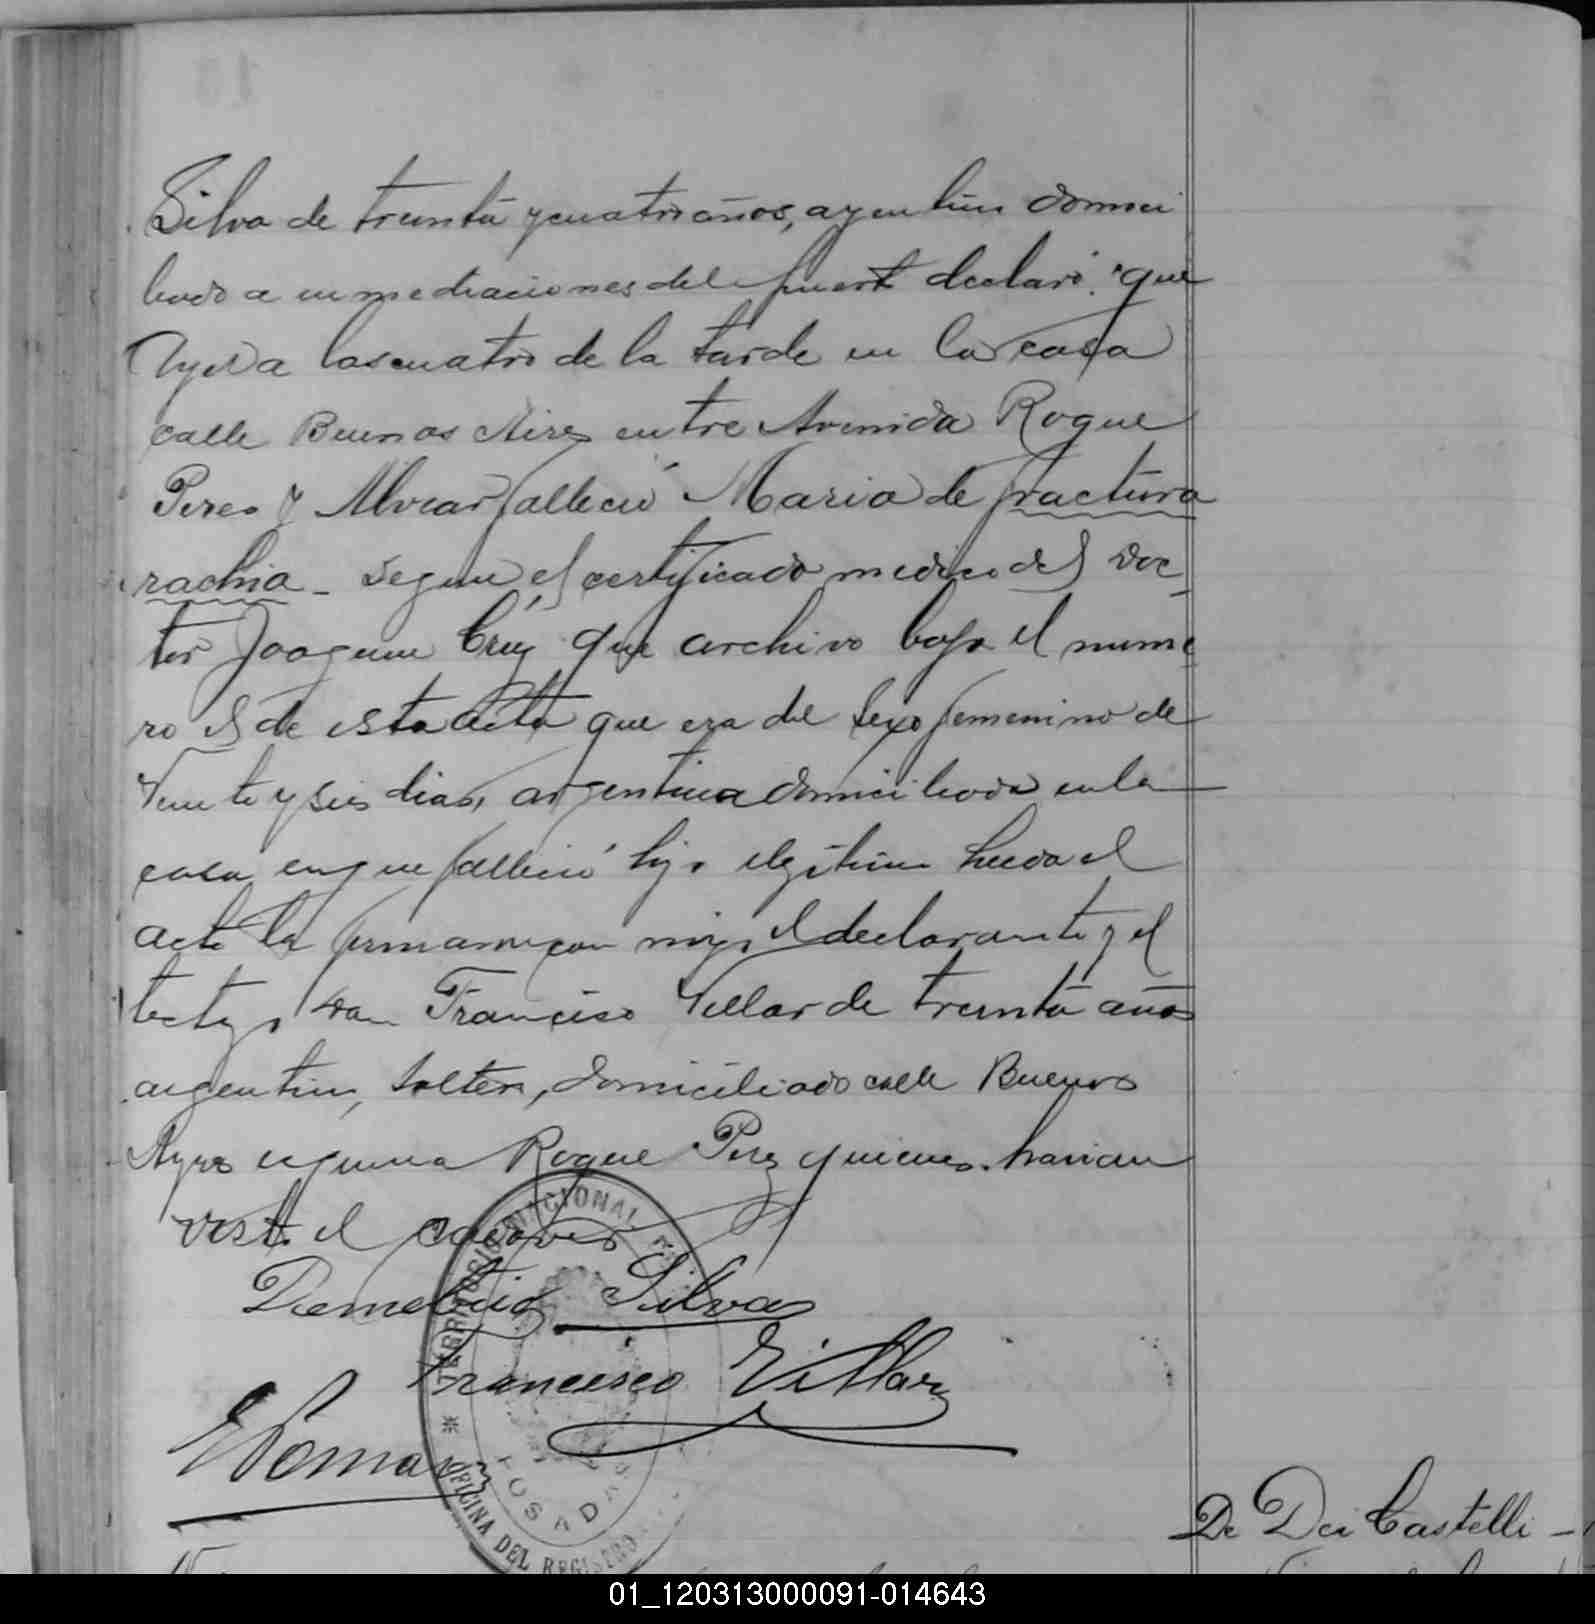 Silva de treinta y cuatro años, argentino domici
liado a inmediaciones del puerto declaró: "que
Ayer a las cuatro de la tarde en la casa
calle Buenos Aires entre Avenida Roque
Peres y Alvear falleció Maria de fractura
rachia - segun el certificado medico del Doc
tor Joaquin Cruz que archivo bajo el nume
ro de esta acta que era del sexo femenino de
Veinte y seis dias, argentina domiciliada en la
casa en que falleció hija ilegitima Leida el
acta la firmaron con migo el declarante y el
testigo Don Francisco Villar de treinta años
argentino, soltero, domiciliado calle Buenos
Ayres esquina Roque Perez quienes havian
visto el cadaver
Demetrio Silva
Francisco Villar
TERRITORIO NACIONAL
POSADAS
OFICINA DEL REGISTRO
De Dei Castelli -
01_120313000091-014643